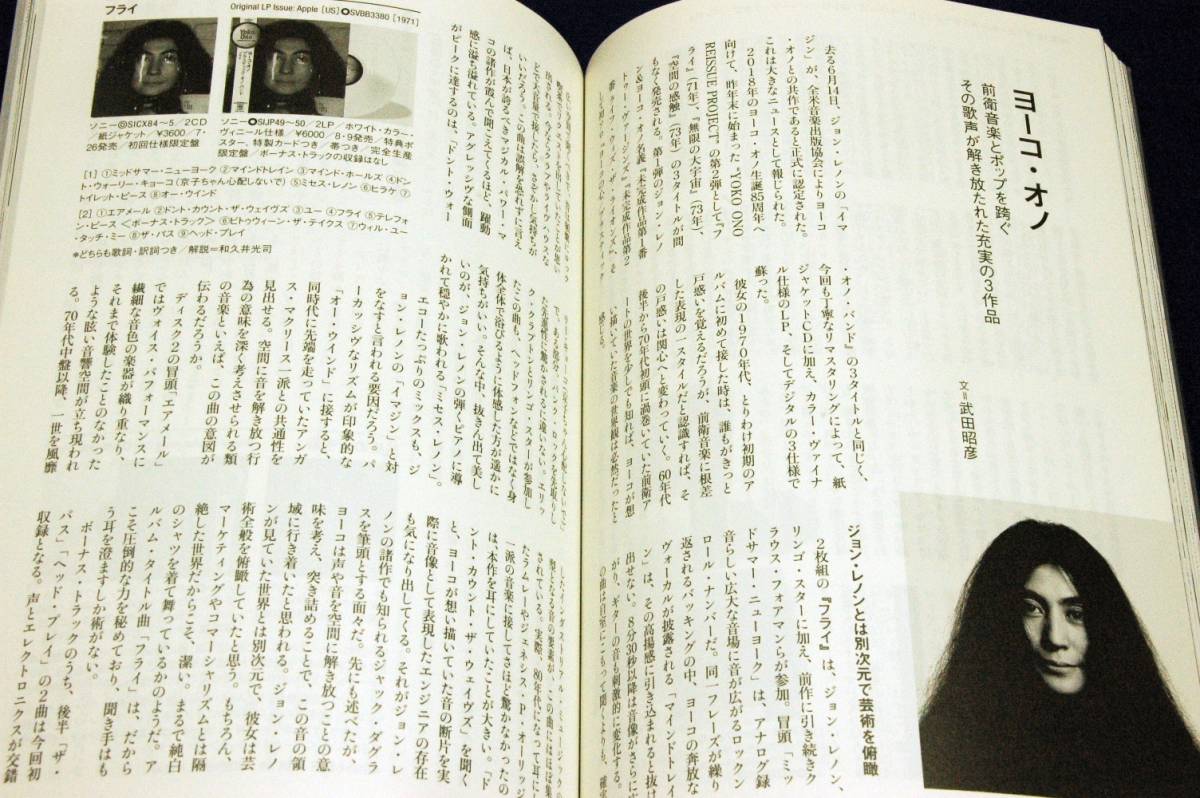 ヨーコ・オノ
前衛音楽とポップを跨ぐ
その歌声が解き放たれた充実の3作品
文=武田昭彦
去る6月14日、ジョン・レノンの「イマ
ジン」が、全米音楽出版協会によりヨーコ
・オノとの共作であると正式に認定された。
これは大きなニュースとして報じられた。
2018年のヨーコ・オノ生誕85周年へ
向けて、昨年末に始まった"YOKO ONO
REISSUE PROJECT"の第2弾として『フ
ライ』(71年)、『無限の大宇宙』(73年)、
『空間の感触』(73年)の3タイトルが間
もなく発売される。第1弾のジョン・レノ
ン&ヨーコ・オノ名義『未完成作品第1番
トゥー・ヴァージンズ』『未完成作品第2
・オノ・バンド』の3タイトルと同じく、
今回も丁寧なリマスタリングによって、紙
ジャケットCDに加え、カラー・ヴァイナ
ル仕様のLP、そしてデジタルの3仕様で
蘇った。
彼女の1970年代、とりわけ初期のア
ルバムに初めて接した時は、誰もがきっと
戸惑いを覚えるだろうが、前衛音楽に根差
した表現の一スタイルだと認識すれば、そ
の戸惑いは関心へと変わっていく。60年代
後半から70年代初頭に渦巻いていた前衛ア
ートの世界を少しでも知れば、ヨーコが想
い描いていた音楽の世界観は必然だったと
感じる。
ジョン・レノンとは別次元で芸術を俯瞰
2枚組の『フライ』は、ジョン・レノン、
リンゴ・スターに加え、前作に引き続きク
ラウス・フォアマンらが参加。冒頭「ミッ
ドサマー・ニューヨーク」は、アナログ録
音らしい広大な音場に音が広がるロックン
ロール・ナンバーだ。同一フレーズが繰り
返されるバッキングの中、ヨーコの奔放な
ヴォーカルが披露される「マインドトレイ
ン」は、その高揚感に引き込まれると抜け
出せない。8分30秒以降は音像がさらに広
がり、ギターの音も刺激的に変化する。
フライ
Original LP Issue: Apple [US] ●SVBB3380 [1971]
ソニー◎SICX84〜5/2CD
・紙ジャケット/¥3600/7・
26発売/初回仕様限定盤
ソニー●SIJP49〜50/2LP/ホワイト・カラー・
ヴィニール仕様/¥6000/8・9発売/特典ポ
スター、特製カードつき/帯つき/完全生産
限定盤/ボーナス・トラックの収録はなし
[1] ①ミッドサマー・ニューヨーク ②マインドトレイン ③マインド・ホールズ ④ドン
ト・ウォーリー・キョーコ(京子ちゃん心配しないで) ⑤ミセス・レノン ⑥ヒラケ ⑦
トイレット・ピース ⑧オー・ウインド
[2] ①エアメール ②ドント・カウント・ザ・ウェイヴズ ③ユー ④フライ ⑤テレフォ
ン・ピース <ボーナス・トラック> ⑥ビトウィーン・ザ・テイクス ⑦ウィル・ユー
・タッチ・ミー ⑧ザ・パス ⑨ヘッド・プレイ
*どちらも歌詞・訳詞つき/解説=和久井光司
いいだろう。この曲は誤解を恐れずに言え
ば、日本が誇るべきマジカル・パワー・マ
コの諸作が霞んで聞こえてくるほど、躍動
感に溢れている。アグレッシヴな側面
がピークに達するのは、「ドント・ウォー
たこの曲も、ヘッドフォンなどではなく身
体全体で浴びるように体感した方が遥かに
気持ちがいい。そんな中、抜きん出て美し
いのが、ジョン・レノンの弾くピアノに導
かれて穏やかに歌われる「ミセス・レノン」。
エコーたっぷりのミックスも、ジ
ョン・レノンの「イマジン」と対
をなすと言われる要因だろう。パ
ーカッシヴなリズムが印象的な
「オー・ウインド」に接すると、
同時代に先端を走っていたアンガ
ス・マクリース一派との共通性を
見出せる。空間に音を解き放つ行
為の意味を深く考えさせられる類
の音楽といえば、この曲の意図が
伝わるだろうか。
ディスク2の冒頭「エアメール」
ではヴォイス・パフォーマンスに
繊細な音色の楽器が織り重なり、
それまで体験したことのなかった
ような眩い音響空間が立ち現われ
る。70年代中盤以降、一世を風靡
したインダストリアル・ミュージックの
されている。実際、80年代になって耳にし
たラムレーやジェネシス・P・オーリッジ
一派の音楽に接してさほど驚かなかったの
は、本作を耳にしていたことが大きい。「ド
ント・カウント・ザ・ウェイヴズ」を聞く
と、ヨーコが想い描いていた音の断片を実
際に音像として表現したエンジニアの存在
も気になり出してくる。それがジョン・レ
ノンの諸作でも知られるジャック・ダグラ
スを筆頭とする面々だ。先にも述べたが、
ヨーコは声や音を空間に解き放つことの意
味を考え、突き詰めることで、この音の領
域に行き着いたと思われる。ジョン・レノ
ンが見ていた世界とは別次元で、彼女は芸
術全般を俯瞰していたと思う。もちろん、
マーケティングやコマーシャリズムとは隔
絶した世界だからこそ、潔い。まるで純白
のシャツを着て舞っているかのようだ。ア
ルバム・タイトル曲「フライ」は、だから
こそ圧倒的な力を秘めており、聞き手はも
う耳を澄ますしか術がない。
ボーナス・トラックのうち、後半「ザ・
パス」「ヘッド・プレイ」の2曲は今回初
収録となる。声とエレクトロニクスが交錯